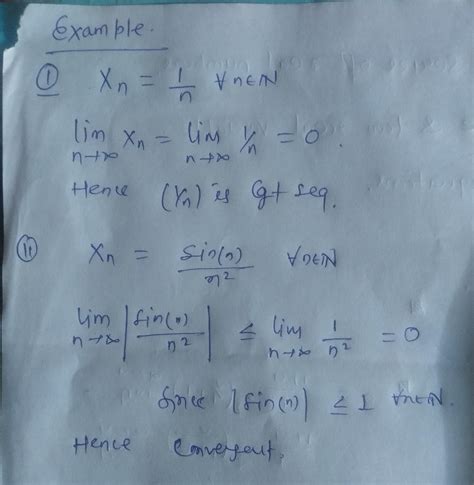 Example.
① Xn = 1/n ∀n∈ℕ
lim n→∞ Xn = lim n→∞ 1/n = 0.
Hence (1/n) is Cgt seq.
② Xn = Sin(n)/n² ∀n∈ℕ
lim n→∞ |Sin(n)/n²| ≤ lim n→∞ 1/n² = 0
Since |Sin(n)| ≤ 1 ∀n∈ℕ.
Hence Convergent.